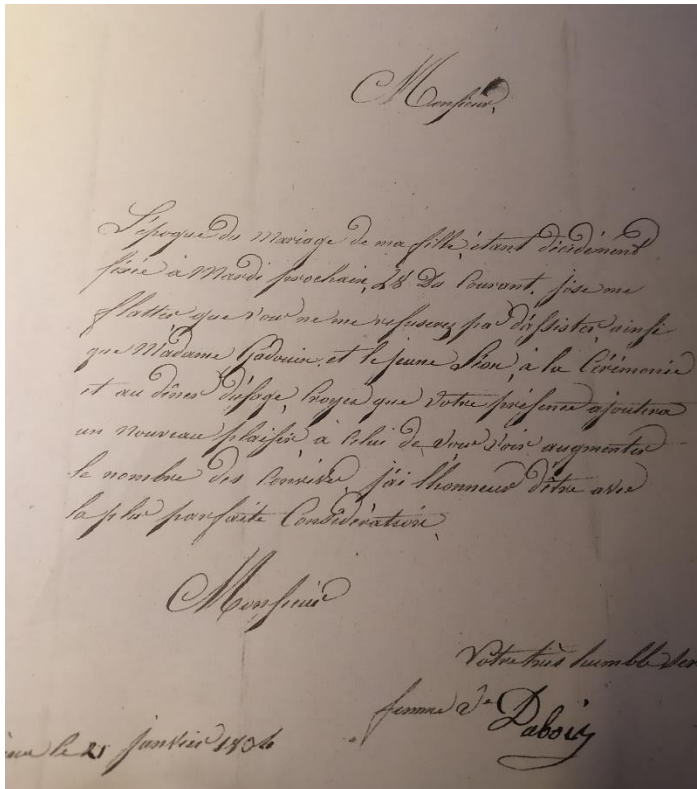 Monsieur,
L'époque du mariage de ma fille, étant décidément
fixée à Mardi prochain, 28 Du Courant, j'ose me
flatter que vous ne me refuserez pas d'assister, ainsi
que Madame Gadouin, et le jeune Léon, à la Cérémonie
et au dîner d'usage, Croyez que votre présence ajoutera
un nouveau plaisir, à Celui de vous voir augmenter
le nombre des Convives, j'ai l'honneur d'être avec
la plus parfaite Considération,
Monsieur
Votre très humble Ser
femme Ve Daboix
le 21 janvier 1834